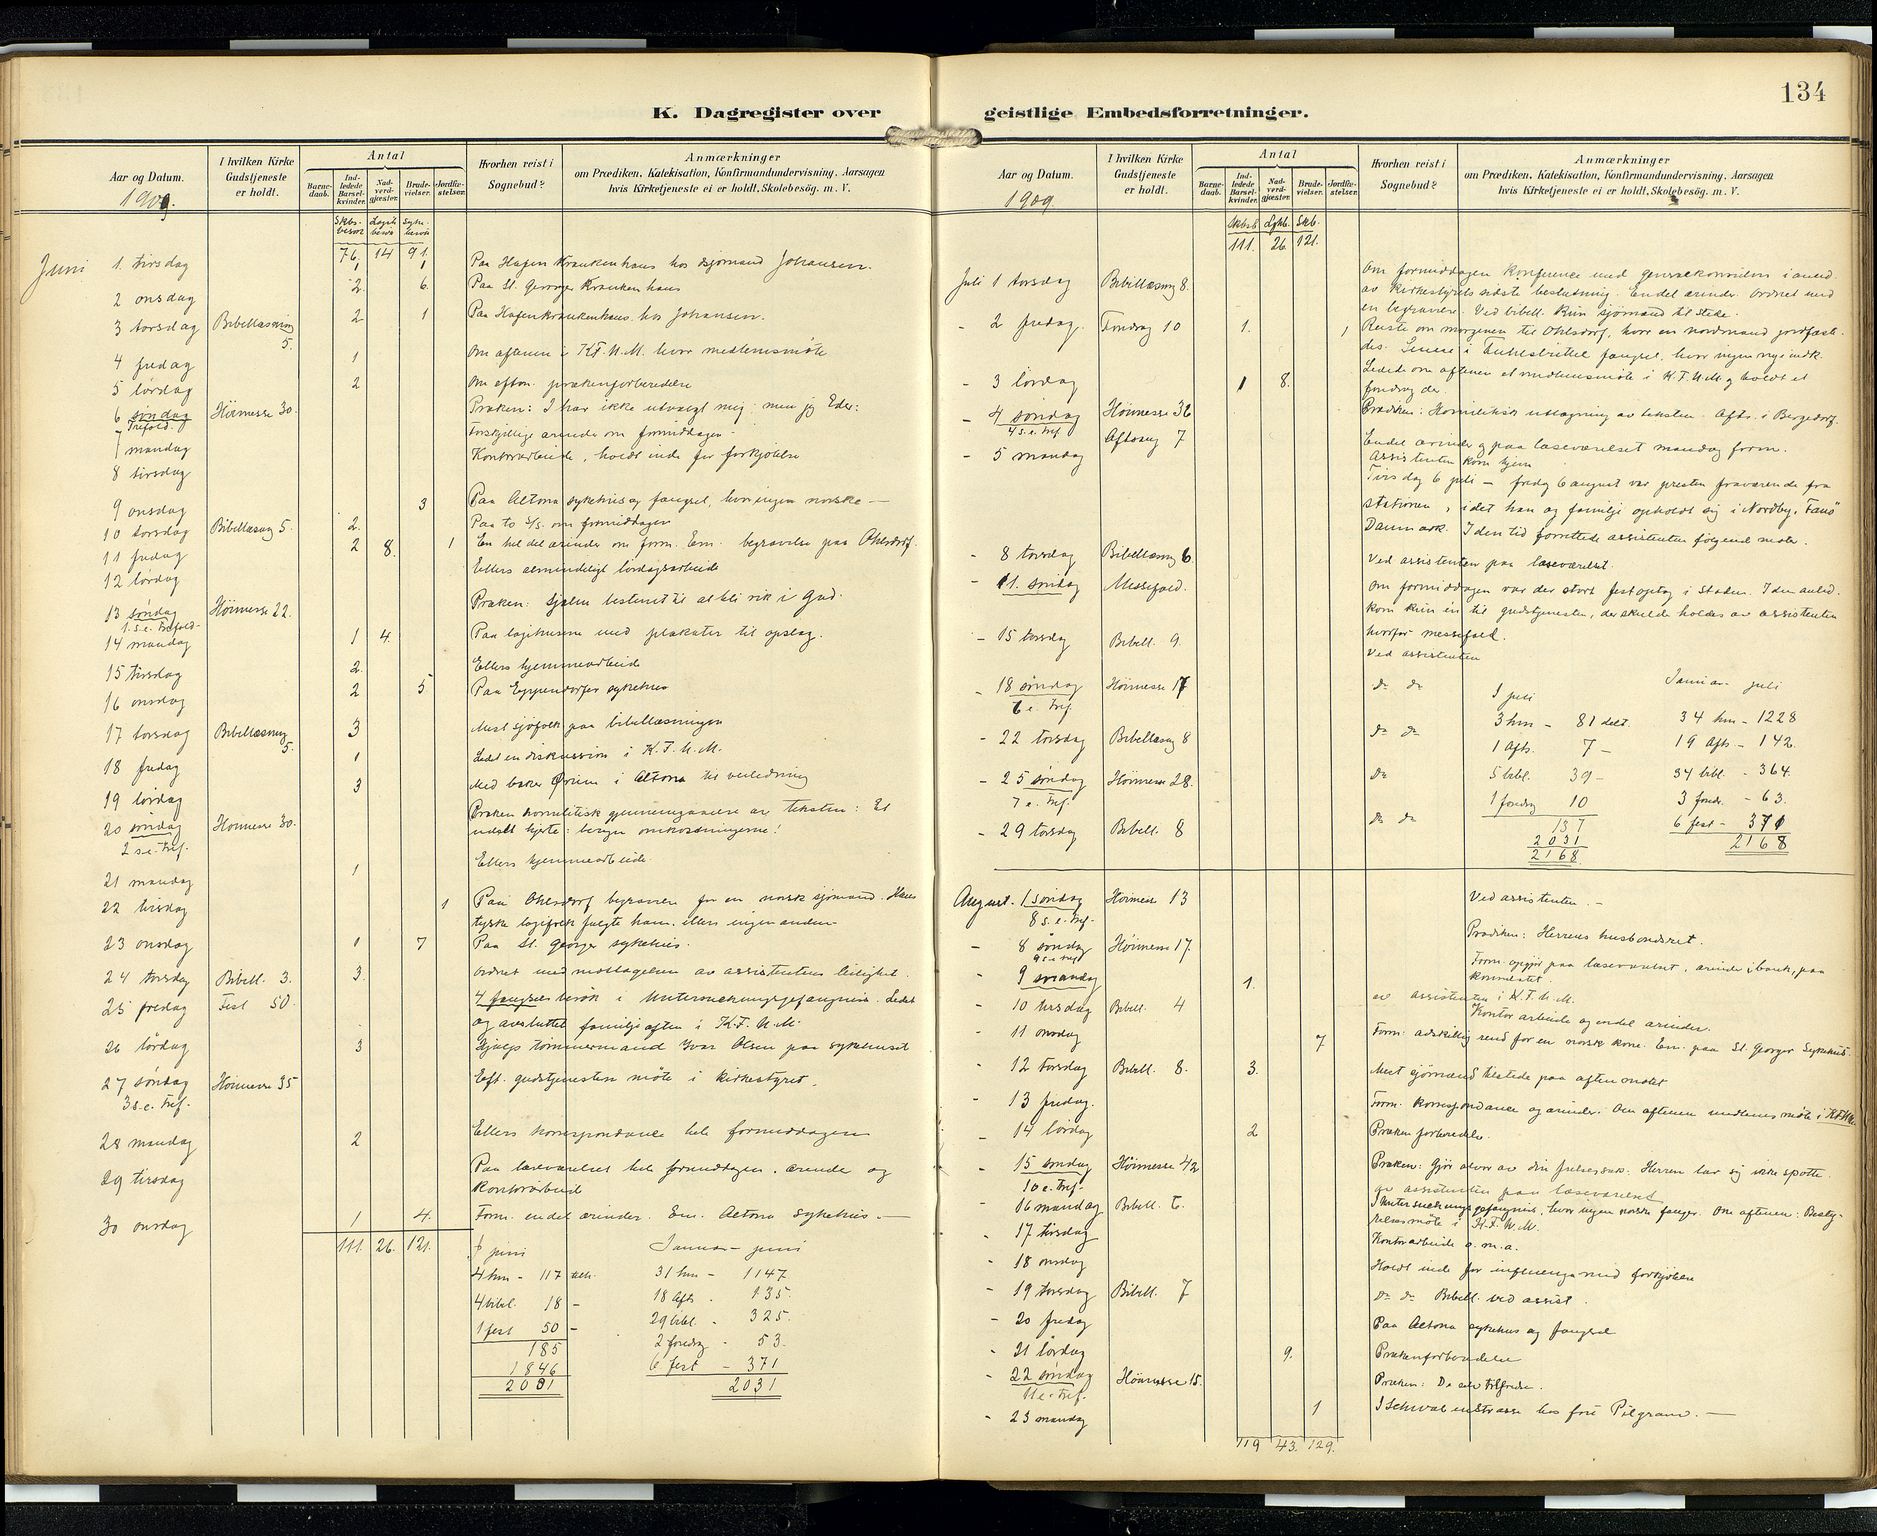 134
K. Dagregister over geistlige Embedsforretninger.
Aar og Datum.
I hvilken Kirke Gudstjeneste er holdt.
Antal
Barne-daab.
Ind-ledede Barsel-kvinder.
Nad-verd-gjæster.
Brude-vielser.
Jordfæ-stelser.
Hvorhen reist i Sognebud?
Anmærkninger
om Prædiken, Katekisation, Konfirmandundervisning, Aarsagen
hvis Kirketjeneste ei er holdt, Skolebesøg. m. V.
1909.
Skbs. besøk Logih. besøk Syke. besøk
76. 14 91.
Juni 1. tirsdag 1 1 Paa Hafen Krankenhaus hos sjømand Johansen.
2 onsdag 2. 6. Paa St. Georger Krankenhaus
3 torsdag Bibellæsning 5. 2 1 Paa Hafenkrankenhaus hos Johansen.
4 fredag 1 Om aftenen i K.F.U.M. hvor medlemsmøte
5 lørdag 2 Om eftm. prækenforberedelse
6 søndag Trefold. Høimesse 30. Præken: I har ikke utvalgt mig; men jeg Eder:
7 mandag Forskjellige ærinder om formiddagen
8 tirsdag Kontorarbeide, holdt inde for forkjølelse
9 onsdag 3 Paa Altona sykehus og fængsel, hvor ingen norske —
10 torsdag Bibellæsng 5. 2. Paa to S/S. om formiddagen
11 fredag 2 8. 1 En hel del ærinder om form. Em. begravelse paa Ohlsdorf.
12 lørdag Ellers almindeligt lørdagsarbeide
13 søndag 1. s. e. Trefold. Høimesse 22. Præken: Sjælen bestemt til at bli rik i Gud.
14 mandag 1 4. Paa logihusene med plakater til opslag.
15 tirsdag 2. Ellers hjemmearbeide
16 onsdag 2 5 Paa Eppendorfer sykehus
17 torsdag Bibellæsning 5. 3 Mest sjøfolk paa bibellæsningen
18 fredag 1 Ledet en diskussion i K.F.U.M.
19 lørdag 3 Med baker Ørium i Altona til veiledning
20 søndag 2 s.e. Tref. Høimesse 30. Præken homilitisk gjennemgaaelse av teksten: Et
delt hjerte: bringer omkostningerne!
21 mandag 1 Ellers hjemmearbeide.
22 tirsdag 1 Paa Ohlsdorf begraven for en norsk sjømand. Hans
tyske logifolk fulgte ham. ellers ingen anden
23 onsdag 1 7 Paa St. Georger sykehus.
24 torsdag Bibell. 3. 3 Ordnet med mottagelsen av assistentens leilighet.
25 fredag Fest 50. 4 fængselsbesøk i Untersuchungsgefängnis. Ledet
og avsluttet familjeaften i K.F.U.M.
26 lørdag 3 Hjulp tømmermand Ivar Olsen paa sykehuset
27 søndag 3 s.e. Tref. Høimesse 35 Eft. gudstjenesten møte i kirkestyret.
28 mandag 2 Ellers korrespondance hele formiddagen
29 tirsdag Paa læseværelset hele formiddagen. ærinder og
kontorarbeid
30 onsdag 1 4. Form. en del ærinder. Em. Altona sykehus. —
111. 26. 121.
I juni Januar – juni
4 hm – 117 delt. 31 hm – 1147
4 bibel. 18 – 18 Afts. – 135.
1 fest 50 – 29 bibl. – 325.
185 2 foredrag – 53.
1846 6 fest – 371
2031 2031
1909.
Skbsb. Logihb. Skb.
111. 26. 121.
Juli 1 torsdag Bibellæsng 8. Om formiddagen konference med generalkonsulen i anled.
av kirkestyrets sidste beslutning. Endel ærinder. Ordnet med
en begravelse. Ved bibell. kun sjømænd til stede.
2 fredag. Foredrag 10 1. 1 Reiste om morgenen til Ohlsdorf, hvor en nordmand jordfæst-
des. Senere i Fuhlsbüttel fængsel, hvor ingen nye indk.
3 lørdag 1 8. Ledede om aftenen et medlemsmøte i K.F.U.M. og holdt et
foredrag der
4 søndag 4 s. e. Tref. Høimesse 32 Aftsang 7 Prædiken: Homilitisk utlægning av teksten. Afts. i Bergedorf.
5 mandag Endel ærinder og paa læseværelset mandag form.
Assistenten kom hjem
Tirsdag 6 juli – fredag 6 august var presten fraværende fra
stationen, idet han og familje opholdt sig i Nordby, Fanø
Danmark. I den tid forrettede assistenten følgende møter.
8 torsdag Bibellæsng 6. Ved assistenten paa læseværelset.
11. søndag Messefald. Om formiddagen var der stort festoptog i staden. I den anled.
kom kun en til gudstjenesten, der skulde holdes av assistenten
hvorfor messefald.
15 torsdag Bibell. 9. Ved assistenten
18 søndag 6 e. Tref. Høimesse 17 do do
22 torsdag Bibellæsng 8 do do
25 søndag 7 e. Tref. Høimesse 28. do
29 torsdag Bibell. 8 do do
I juli Januar – juli
3 hm – 81 delt. 34 hm – 1228
1 Afts. 7 – 19 Afts. – 142.
5 bibl. 39 – 34 bibl. – 364.
1 foredrag 10 3 fordr. – 63.
137 6 fest – 371
2031 2168
2168.
August. 1 søndag 8 s.e. Tref. Høimesse 13 Ved assistenten. –
8 søndag 9 s.e. Tref. Høimesse 17. Prædiken: Herrens husbondsret.
9 mandag 1. Form. opgjør paa læseværelset, ærinder i bank, paa
konsulatet.
10 tirsdag Bibell. 4 av assistenten i K.F.U.M.
Kontorarbeide og endel ærinder.
11 onsdag 7 Form. adskillig rend for en norsk kone. Em. paa St. Georger Sykehus.
12 torsdag Bibell. 8. 3. Mest sjømænd tilstede paa aftenmøtet
13 fredag. Form. korrespondance og ærinder. Om aftenen medlemsmøte i K.F.U.M.
14 lørdag 2 Præken forberedelse.
15 søndag 10 e. Tref. Høimesse 42 Præken: Gjør alvor av din frelsessak. Herren lar sig ikke spotte
av assistenten paa læseværelset
16 mandag Bibell. 6. I Untersuchungsgefängnis, hvor ingen norske fanger. Om aftenen: Besty-
relsesmøte i K.F.U.M.
17 tirsdag Kontorarbeide o.m.a.
18 onsdag Holdt inde for influenza med forkjølelse
19 torsdag Bibell. 7 do do Bibell. ved assist.
20 fredag Paa Altona sykehus og fængsel
21 lørdag 9. Prækenforberedelse
22 søndag 11 e. Tref. Høimesse 15. Præken: De selvtilfredse.
23 mandag 1 I Schwabenstrasse hos fru Pilgram. —
119 43. 129.